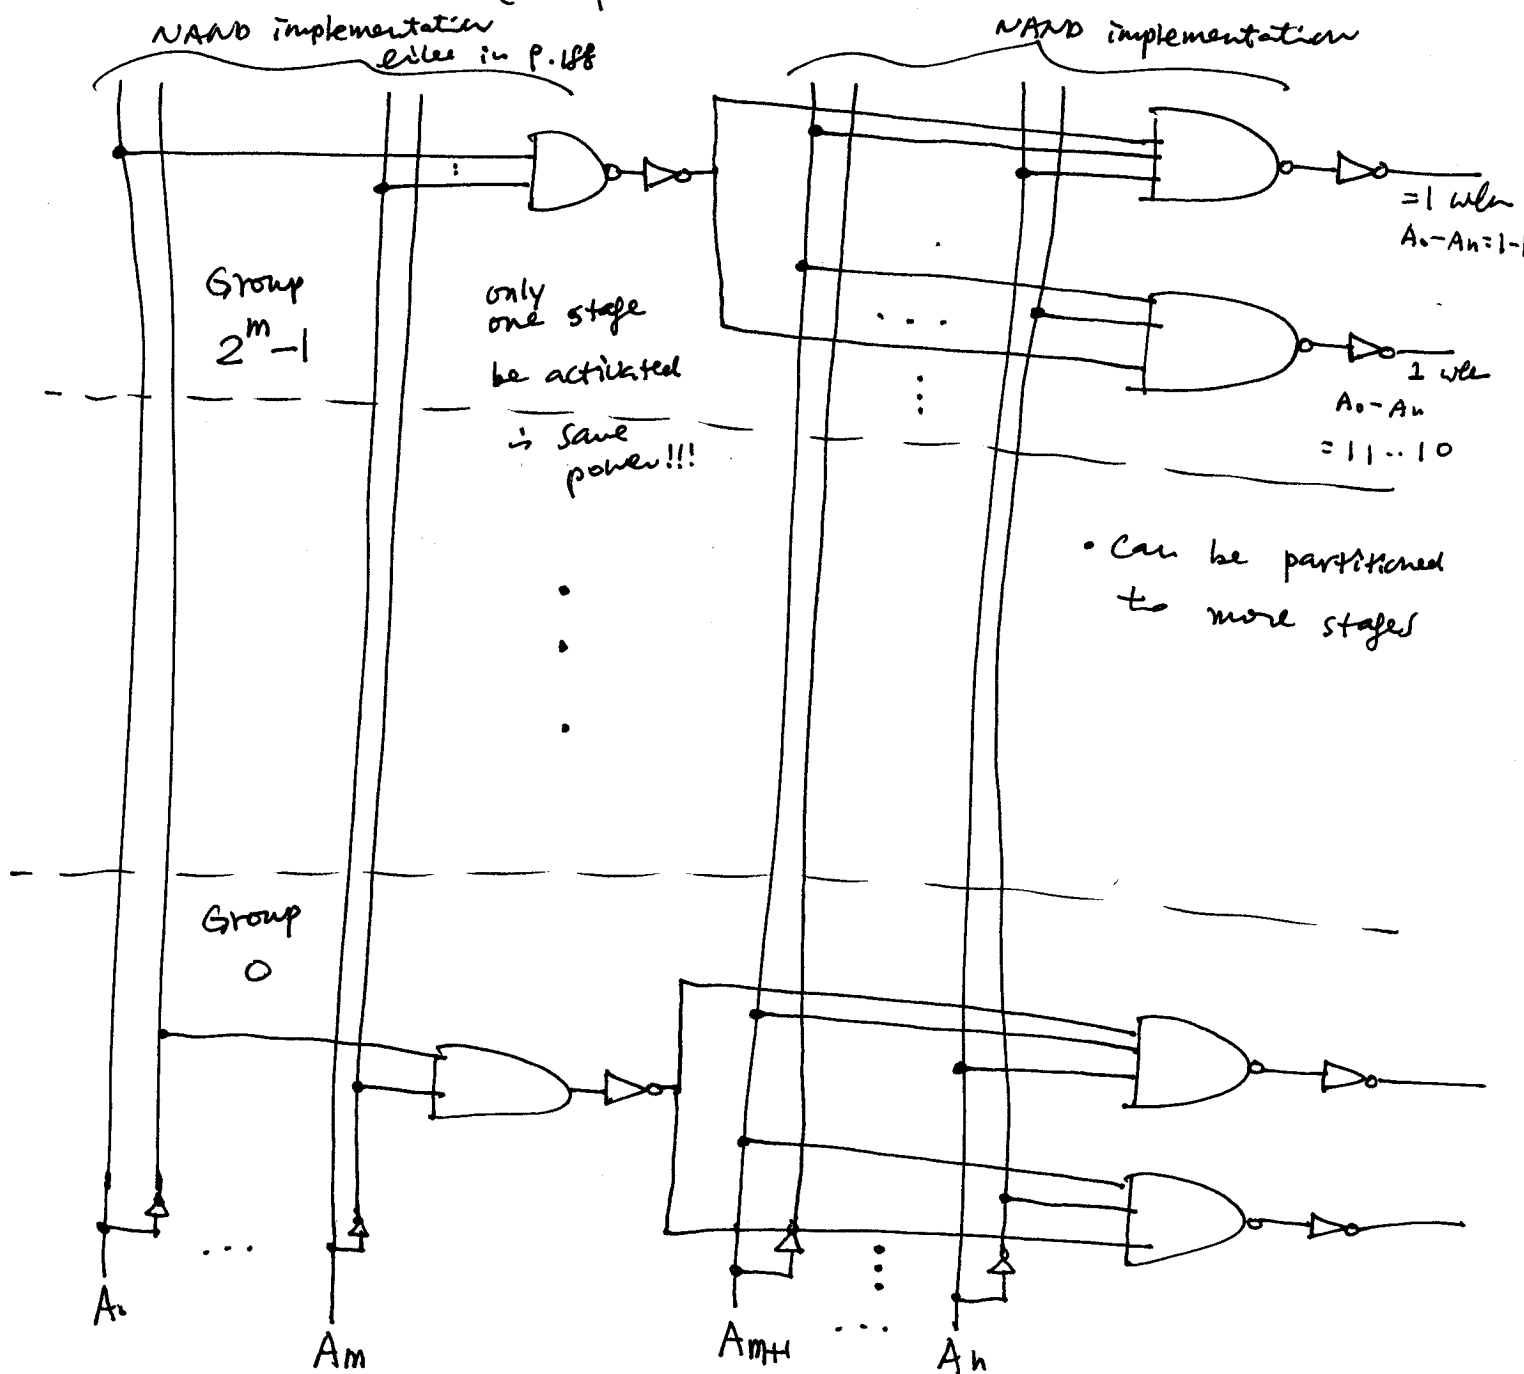 NAND implementation
in P.188
NAND implementation
=1 when
A₀-An=1-1
Group
2^m-1
only
one stage
be activated
∴ save
power!!!
1 when
A₀-An
=11..10
• Can be partitioned
to more stages
Group
0
A₀
...
Am
Am+1
...
An